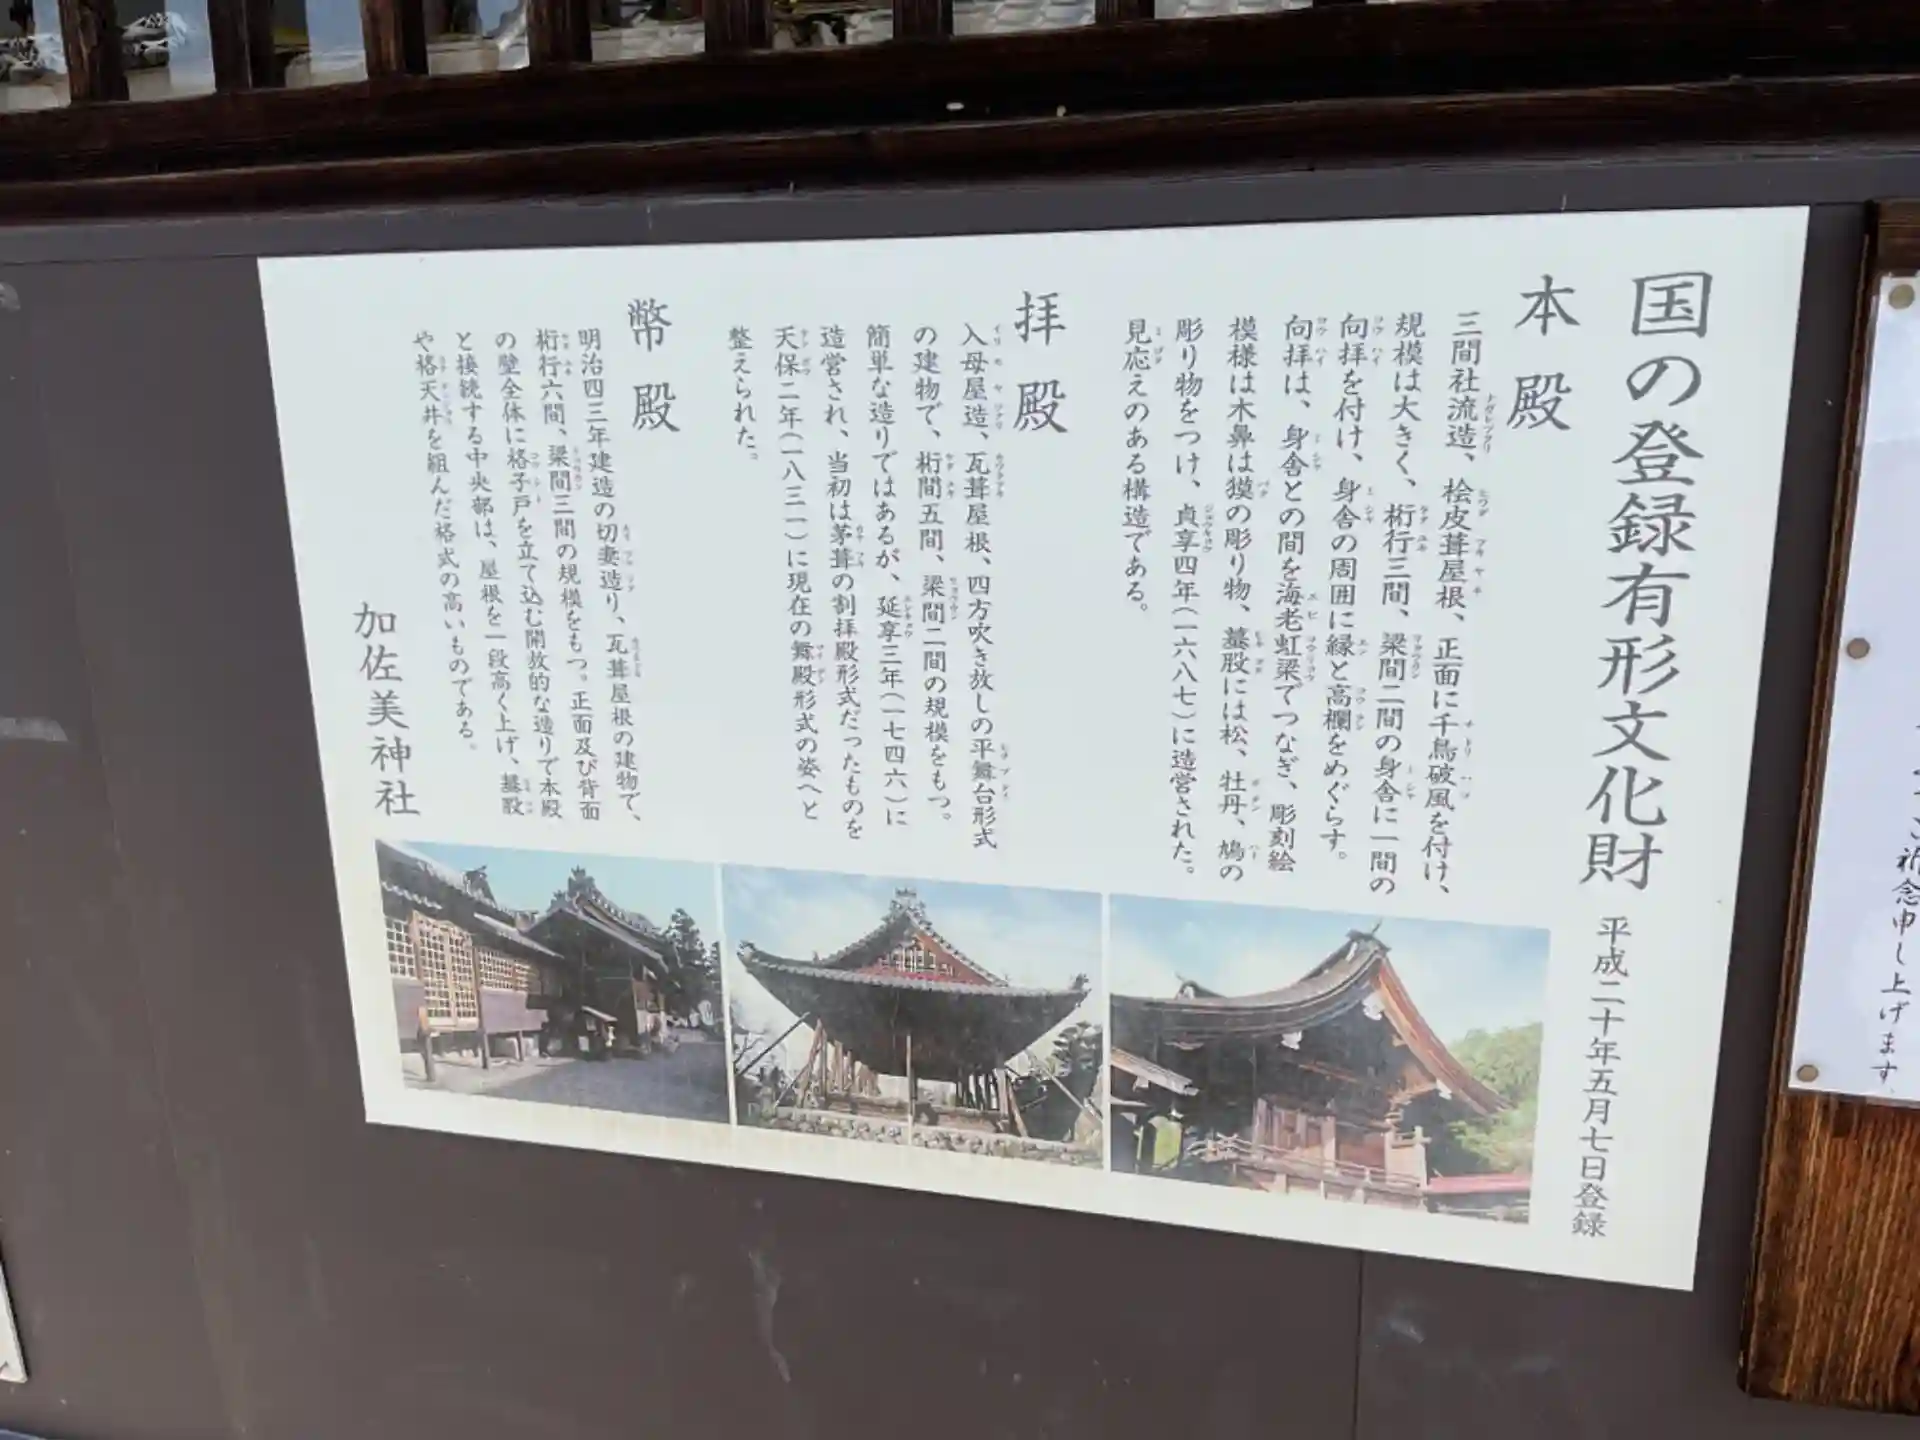 国の登録有形文化財 平成二十年五月七日登録
本殿
三間社流造、桧皮葺屋根、正面に千鳥破風を付け、
規模は大きく、桁行三間、梁間二間の身舎に一間の
向拝を付け、身舎の周囲に縁と高欄をめぐらす。
向拝は、身舎との間を海老虹梁でつなぎ、彫刻絵
模様は木鼻は獏の彫り物、蟇股には松、牡丹、鳩の
彫り物をつけ、貞享四年(一六八七)に造営された。
見応えのある構造である。
拝殿
入母屋造、瓦葺屋根、四方吹き放しの平舞台形式
の建物で、桁間五間、梁間二間の規模をもつ。
簡単な造りではあるが、延享三年(一七四六)に
造営され、当初は茅葺の割拝殿形式だったものを
天保二年(一八三一)に現在の舞殿形式の姿へと
整えられた。
幣殿
明治四三年建造の切妻造り、瓦葺屋根の建物で、
桁行六間、梁間三間の規模をもつ。正面及び背面
の壁全体に格子戸を立て込む開放的な造りで本殿
と接続する中央部は、屋根を一段高く上げ、蟇股
や格天井を組んだ格式の高いものである。
加佐美神社
祈念申し上げます